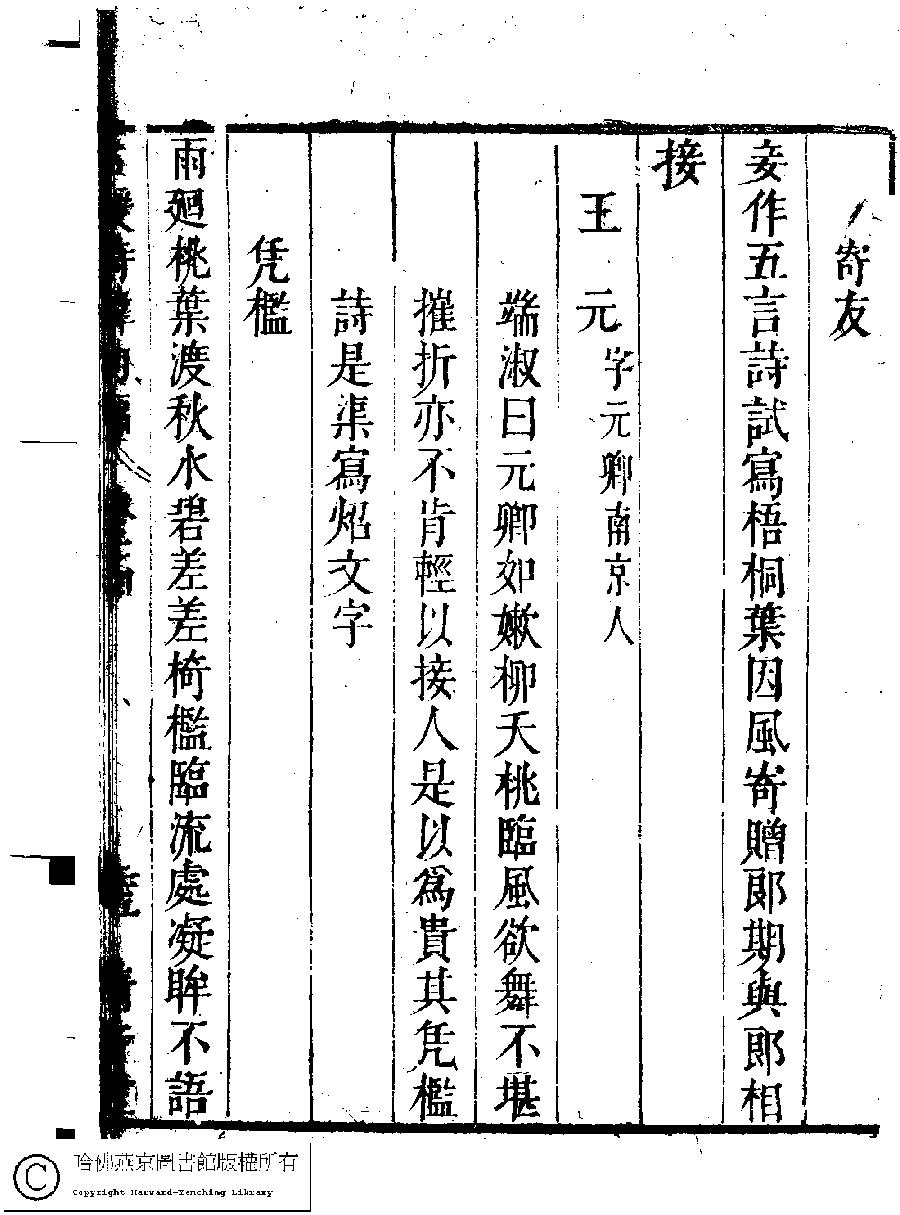 寄友
妾作五言詩試寫梧桐葉因風寄贈郞期與郞相
接
王元字元卿南京人
端淑曰元卿如嫩柳夭桃臨風欲舞不堪
摧折亦不肯輕以接人是以爲貴其凭檻
詩是渠寫炤文字
凭檻
雨廻桃葉渡秋水碧差差椅檻臨流處凝眸不語
哈佛燕京圖書館版權所有
Copyright Harvard-Yenching Library